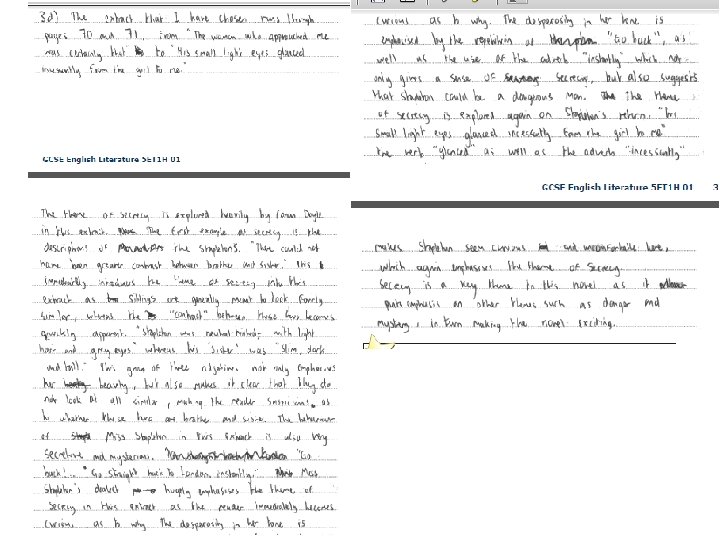 3d) The extract that I have chosen runs through
pages 70 and 71, from "The woman who approached me
was certainly that" to "His small light eyes glanced
incessantly from the girl to me."
GCSE English Literature 5ET1H 01
The theme of secrecy is explored heavily by Conan Doyle
in this extract. The first example of secrecy is the
descriptions of the Stapletons. "There could not
have been greater contrast between brother and sister." This
immediately introduces the theme of secrecy into this
extract as siblings are generally meant to look fairly
similar, whereas the "contrast" between these two becomes
quickly apparent. "Stapleton was neutral tinted, with light
hair and grey eyes" whereas his 'sister' was "slim, dark
and tall." This group of three adjectives not only emphasises
her beauty, but also makes it clear that they do
not look at all similar, making the reader suspicious as
to whether these two are brother and sister. The behaviour
of Miss Stapleton in this extract is also very
secretive and mysterious. "Go
back!.. "Go straight back to London, instantly." Miss
Stapleton's dialect hugely emphasises the theme of
secrecy in this extract as the reader immediately becomes
curious as to why. The desparosity in her tone is
curious as to why. The desparosity in her tone is
emphasised by the repetition of "Go back", as
well as the use of the adverb "instantly" which not
only gives a sense of secrecy, but also suggests
that Stapleton could be a dangerous man. The theme
of secrecy is explored again on Stapleton's return. "his
small light eyes glanced incessantly from the girl to me"
the verb "glanced" as well as the adverb "incessantly"
GCSE English Literature 5ET1H 01 3
makes Stapleton seem curious and uncomfortable here,
which again emphasises the theme of secrecy.
Secrecy is a key theme to this novel as it
puts emphasis on other themes such as danger and
mystery, in turn making the novel exciting.